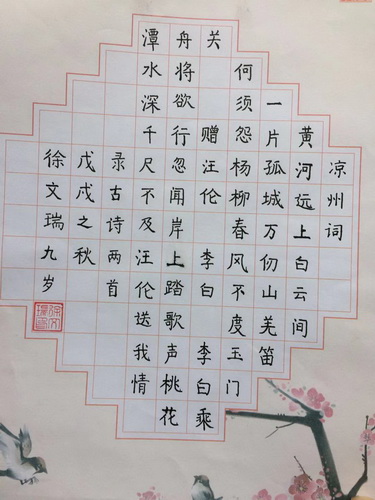 凉州词
黄河远上白云间
一片孤城万仞山羌笛
何须怨杨柳春风不度玉门
关 赠汪伦 李白 李白乘
舟将欲行忽闻岸上踏歌声桃花
潭水深千尺不及汪伦送我情
录古诗两首
戊戌之秋
徐文瑞九岁